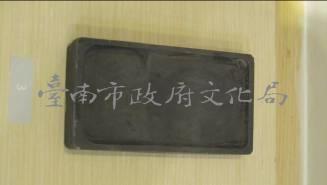 臺南市政府文化局
3